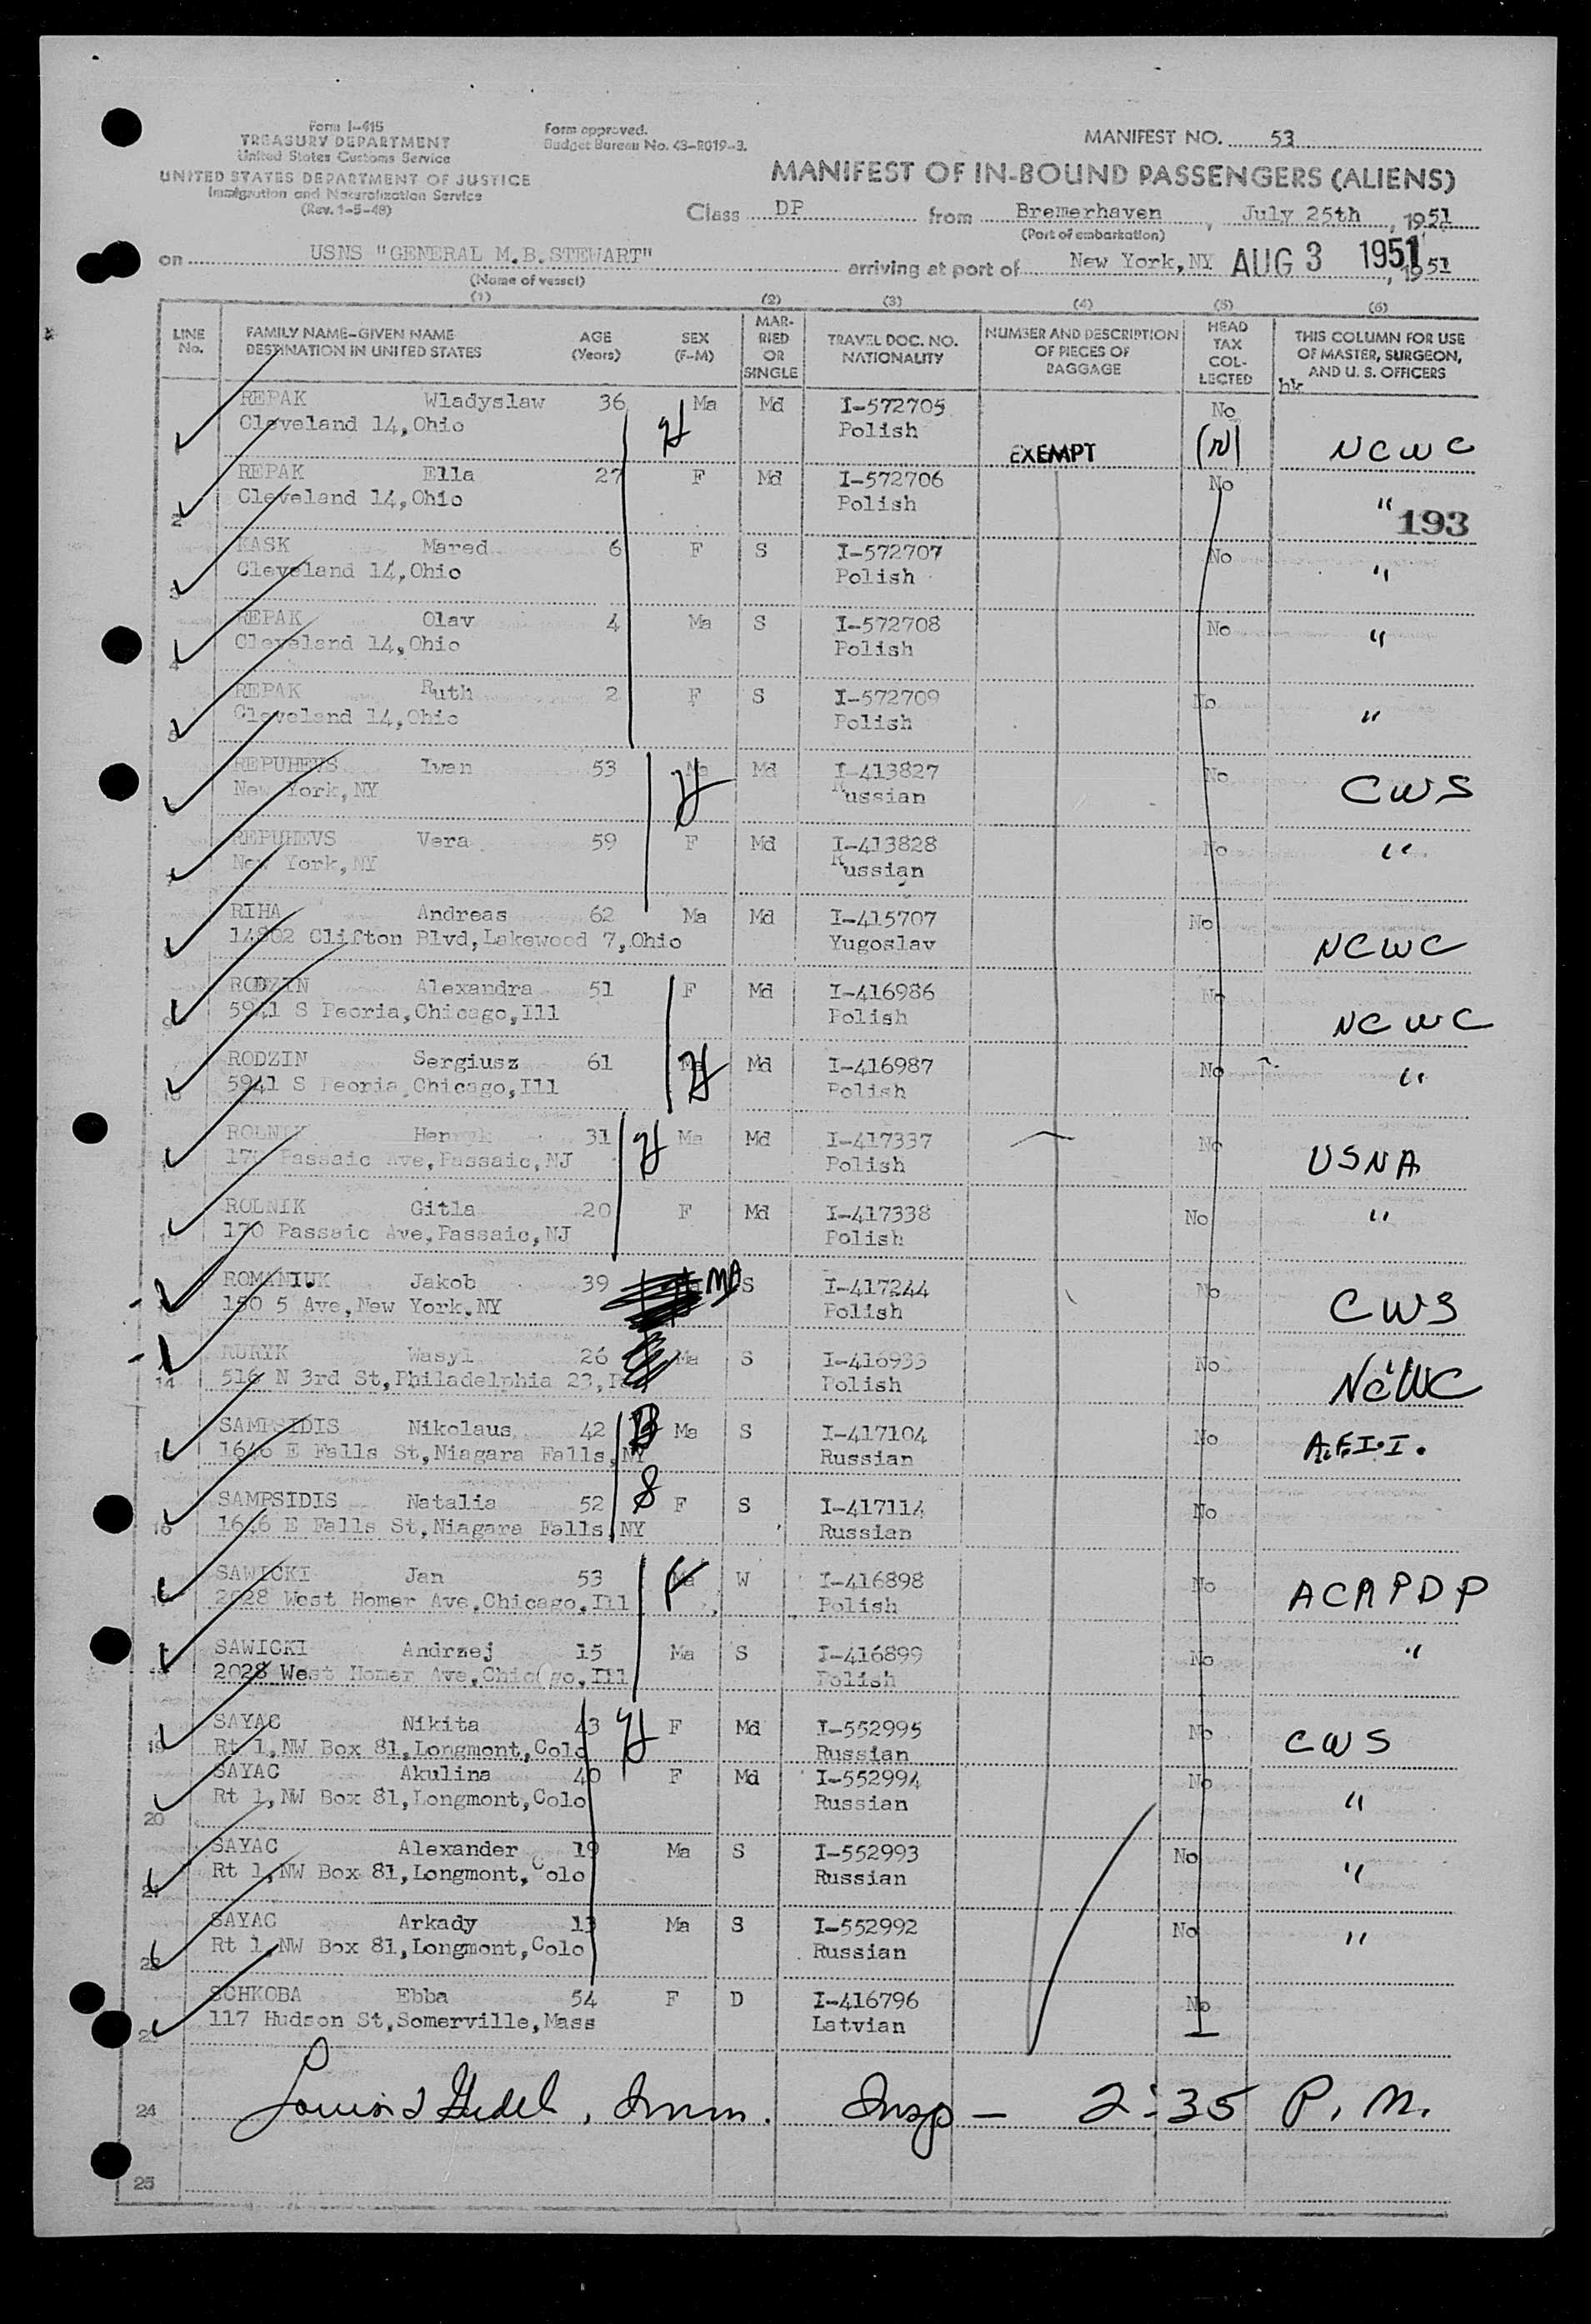 Form I-415
TREASURY DEPARTMENT
United States Customs Service
UNITED STATES DEPARTMENT OF JUSTICE
Immigration and Naturalization Service
(Rev. 1-5-48)
Form approved.
Budget Bureau No. 43-R019-3.
MANIFEST NO. 53
MANIFEST OF IN-BOUND PASSENGERS (ALIENS)
Class DP from Bremerhaven, July 25th, 1951
(Port of embarkation)
on USNS "GENERAL M.B.STEWART" arriving at port of New York,NY AUG 3 1951, 1951
(Name of vessel)
(1) (2) (3) (4) (5) (6)
LINE No. FAMILY NAME-GIVEN NAME DESTINATION IN UNITED STATES AGE (Years) SEX (F-M) MAR-RIED OR SINGLE TRAVEL DOC. NO. NATIONALITY NUMBER AND DESCRIPTION OF PIECES OF BAGGAGE HEAD TAX COL-LECTED THIS COLUMN FOR USE OF MASTER, SURGEON, AND U. S. OFFICERS
hk
REPAK Wladyslaw 36 Ma Md I-572705 No
Cleveland 14,Ohio Polish EXEMPT (N) NCWC
REPAK Ella 27 F Md I-572706 No
2 Cleveland 14,Ohio Polish " 193
KASK Mared 6 F S I-572707 No
3 Cleveland 14,Ohio Polish "
REPAK Olav 4 Ma S I-572708 No
4 Cleveland 14,Ohio Polish "
REPAK Ruth 2 F S I-572709 No
5 Cleveland 14,Ohio Polish "
REPUHEVS Iwan 53 Ma Md I-413827 No
New York,NY Russian CWS
REPUHEVS Vera 59 F Md I-413828 No
7 New York,NY Russian "
RIHA Andreas 62 Ma Md I-415707 No
14802 Clifton Blvd,Lakewood 7,Ohio Yugoslav NCWC
RODZIN Alexandra 51 F Md I-416986 No
9 5941 S Peoria,Chicago,Ill Polish NCWC
RODZIN Sergiusz 61 Ma Md I-416987 No
10 5941 S Peoria,Chicago,Ill Polish "
ROLNIK Henryk 31 Ma Md I-417337 No
170 Passaic Ave,Passaic,NJ Polish USNA
ROLNIK Gitla 20 F Md I-417338 No
170 Passaic Ave,Passaic,NJ Polish "
ROMANIUK Jakob 39 MA S I-417244 No
150 5 Ave,New York,NY Polish CWS
RURYK Wasyl 26 Ma S I-416933 No
14 516 N 3rd St,Philadelphia 23, Polish NCWC
SAMPSIDIS Nikolaus 42 Ma S I-417104 No
1646 E Falls St,Niagara Falls,NY Russian A.F.I.I.
SAMPSIDIS Natalia 52 F S I-417114 No
16 1646 E Falls St,Niagara Falls,NY Russian
SAWICKI Jan 53 Ma W I-416898 No
2028 West Homer Ave,Chicago,Ill Polish ACAPDP
SAWICKI Andrzej 15 Ma S I-416899 No
2028 West Homer Ave,Chic(go,Ill Polish "
SAYAC Nikita 43 F Md I-552995 No
19 Rt 1,NW Box 81,Longmont,Colo Russian CWS
SAYAC Akulina 40 F Md I-552994 No
20 Rt 1,NW Box 81,Longmont,Colo Russian "
SAYAC Alexander 19 Ma S I-552993 No
21 Rt 1,NW Box 81,Longmont,Colo Russian "
SAYAC Arkady 13 Ma S I-552992 No
22 Rt 1,NW Box 81,Longmont,Colo Russian "
SCHKOBA Ebba 54 F D I-416796 No
23 117 Hudson St,Somerville,Mass Latvian
24 Imm. Insp - 2:35 P.M.
25